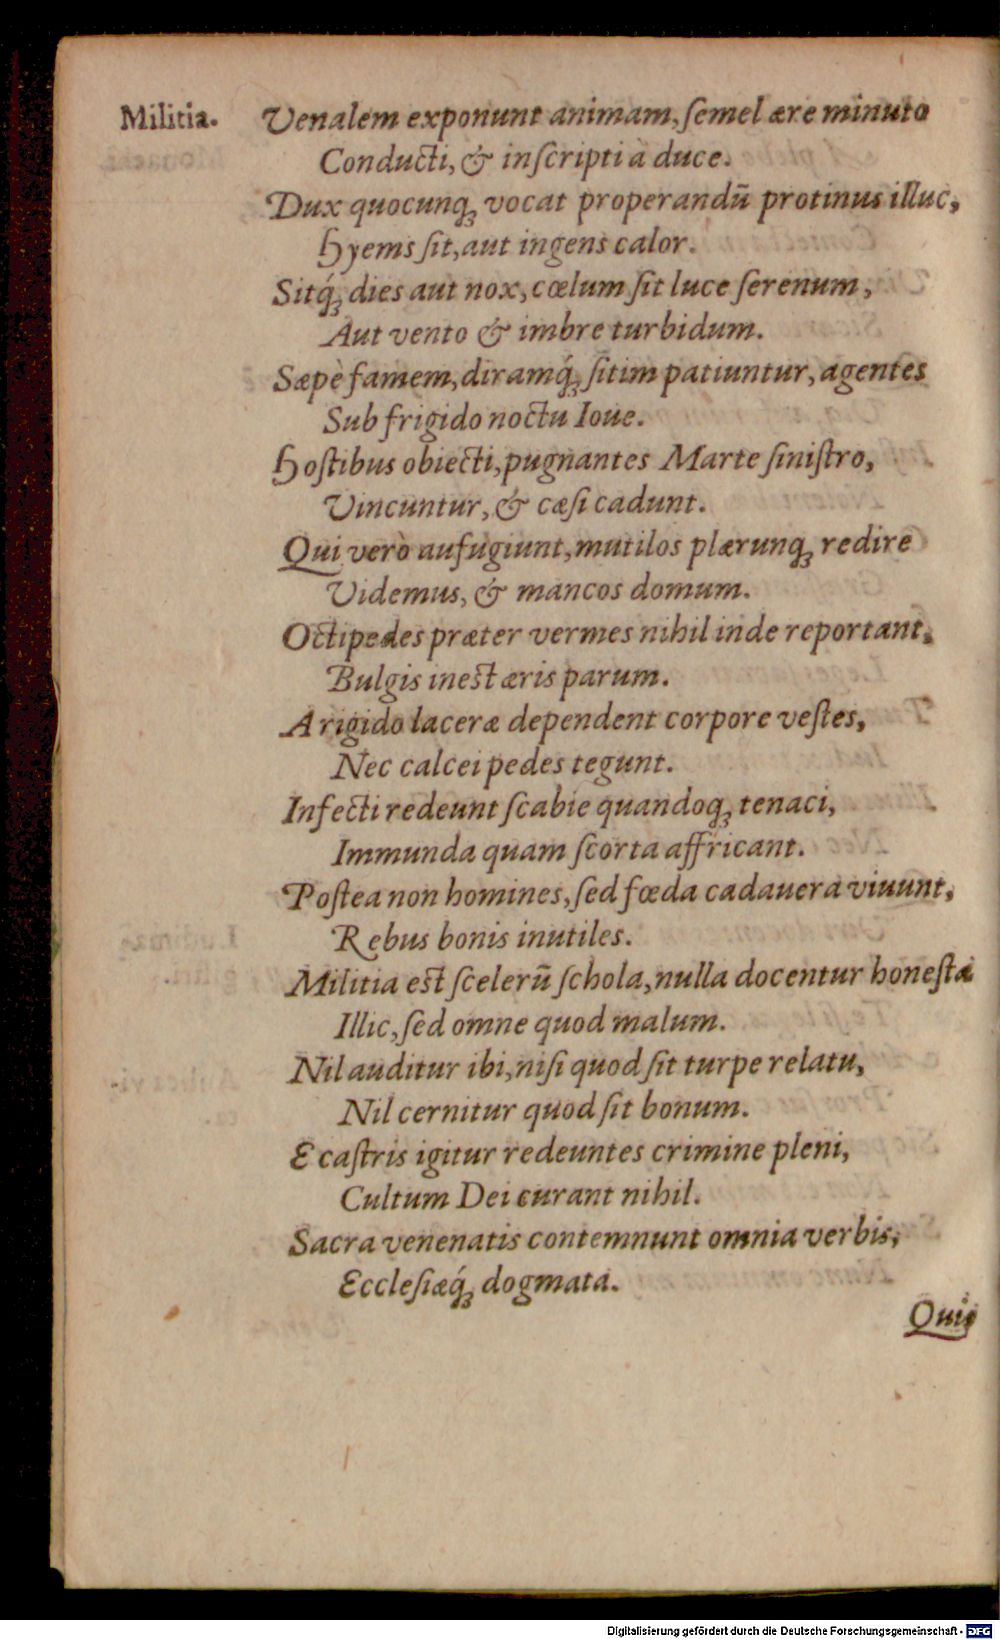 Militia.
Venalem exponunt animam, ſemel ære minuto
Conducti, & inſcripti à duce.
Dux quocunqꝫ vocat properandū protinus illuc,
Hyems ſit, aut ingens calor.
Sitq́ꝫ dies aut nox, cœlum ſit luce ſerenum,
Aut vento & imbre turbidum.
Sæpè famem, diramq́ꝫ ſitim patiuntur, agentes
Sub frigido noctu Ioue.
Hoſtibus obiecti, pugnantes Marte ſiniſtro,
Vincuntur, & cæſi cadunt.
Qui verò aufugiunt, mutilos plærunqꝫ redire
Videmus, & mancos domum.
Octipedes præter vermes nihil inde reportant,
Bulgis inest æris parum.
A rigido laceræ dependent corpore veſtes,
Nec calcei pedes tegunt.
Infecti redeunt ſcabie quandoqꝫ tenaci,
Immunda quam ſcorta affricant.
Poſtea non homines, ſed fœda cadauera viuunt,
Rebus bonis inutiles.
Militia est ſcelerū ſchola, nulla docentur honeſta
Illic, ſed omne quod malum.
Nil auditur ibi, niſi quod ſit turpe relatu,
Nil cernitur quod ſit bonum.
E caſtris igitur redeuntes crimine pleni,
Cultum Dei curant nihil.
Sacra venenatis contemnunt omnia verbis,
Eccleſiæq́ꝫ dogmata.
Digitalisierung gefördert durch die Deutsche Forschungsgemeinschaft - DFG